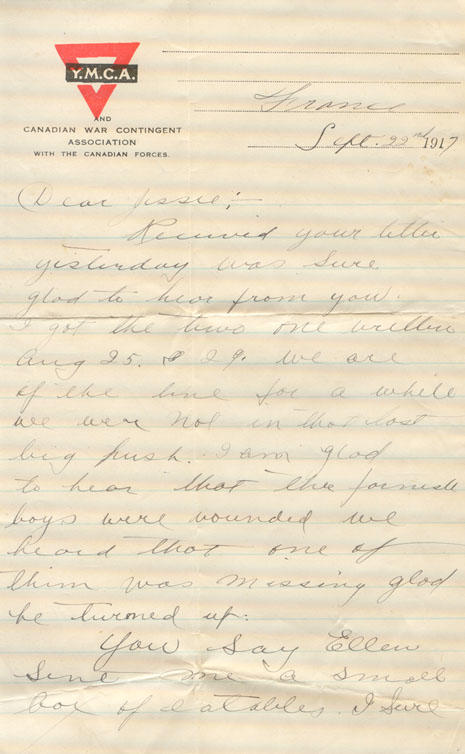 Y.M.C.A.
AND
CANADIAN WAR CONTINGENT
ASSOCIATION
WITH THE CANADIAN FORCES.
France
Sept. 22nd 1917
Dear Jessie;-
Received your letter
yesterday was sure
glad to hear from you.
I got the two one written
Aug 25. & 29. We are
of the line for a while
we were not in that last
big push. I am glad
to hear that the
boys were wounded we
heard that one of
them was missing glad
he turned up.
You say Ellen
sent me a small
box of eatables. I sure